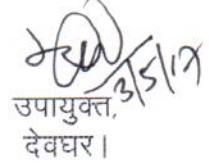 3/5/17
उपायुक्त,
देवघर।